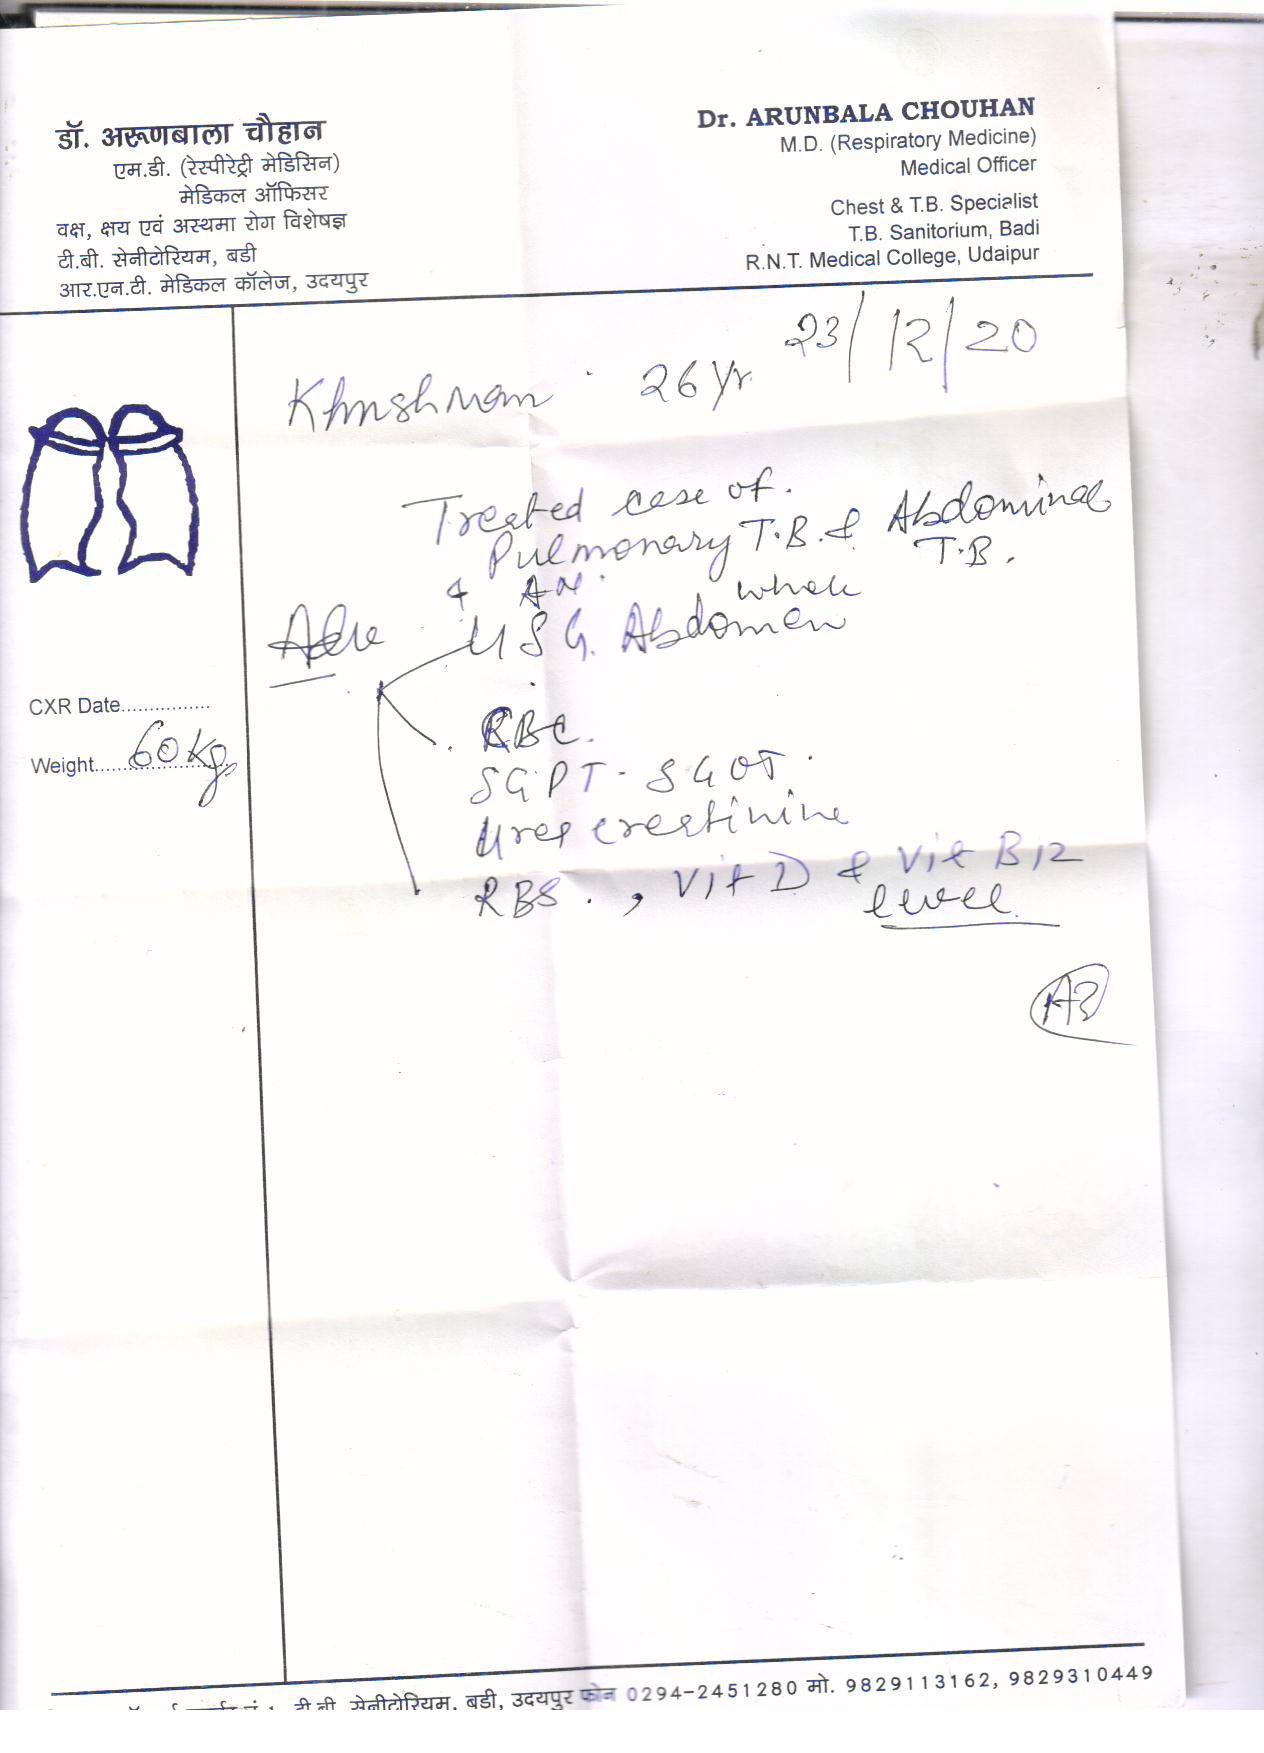 डॉ. अरूणबाला चौहान
एम.डी. (रेस्पीरेट्री मेडिसिन)
मेडिकल ऑफिसर
वक्ष, क्षय एवं अस्थमा रोग विशेषज्ञ
टी.बी. सेनीटोरियम, बडी
आर.एन.टी. मेडिकल कॉलेज, उदयपुर
Dr. ARUNBALA CHOUHAN
M.D. (Respiratory Medicine)
Medical Officer
Chest & T.B. Specialist
T.B. Sanitorium, Badi
R.N.T. Medical College, Udaipur
23/12/20
26 Yr.
Treated case of.
Pulmonary T.B. & Abdominal
T.B.
Adv
whole
USG. Abdomen
CXR Date................
Weight.....60 kg
SGPT - SGOT.
Urea creatinine
RBS. , Vit D & Vit B12
level
टी.बी. सेनीटोरियम, बडी, उदयपुर फोन 0294-2451280 मो. 9829113162, 9829310449